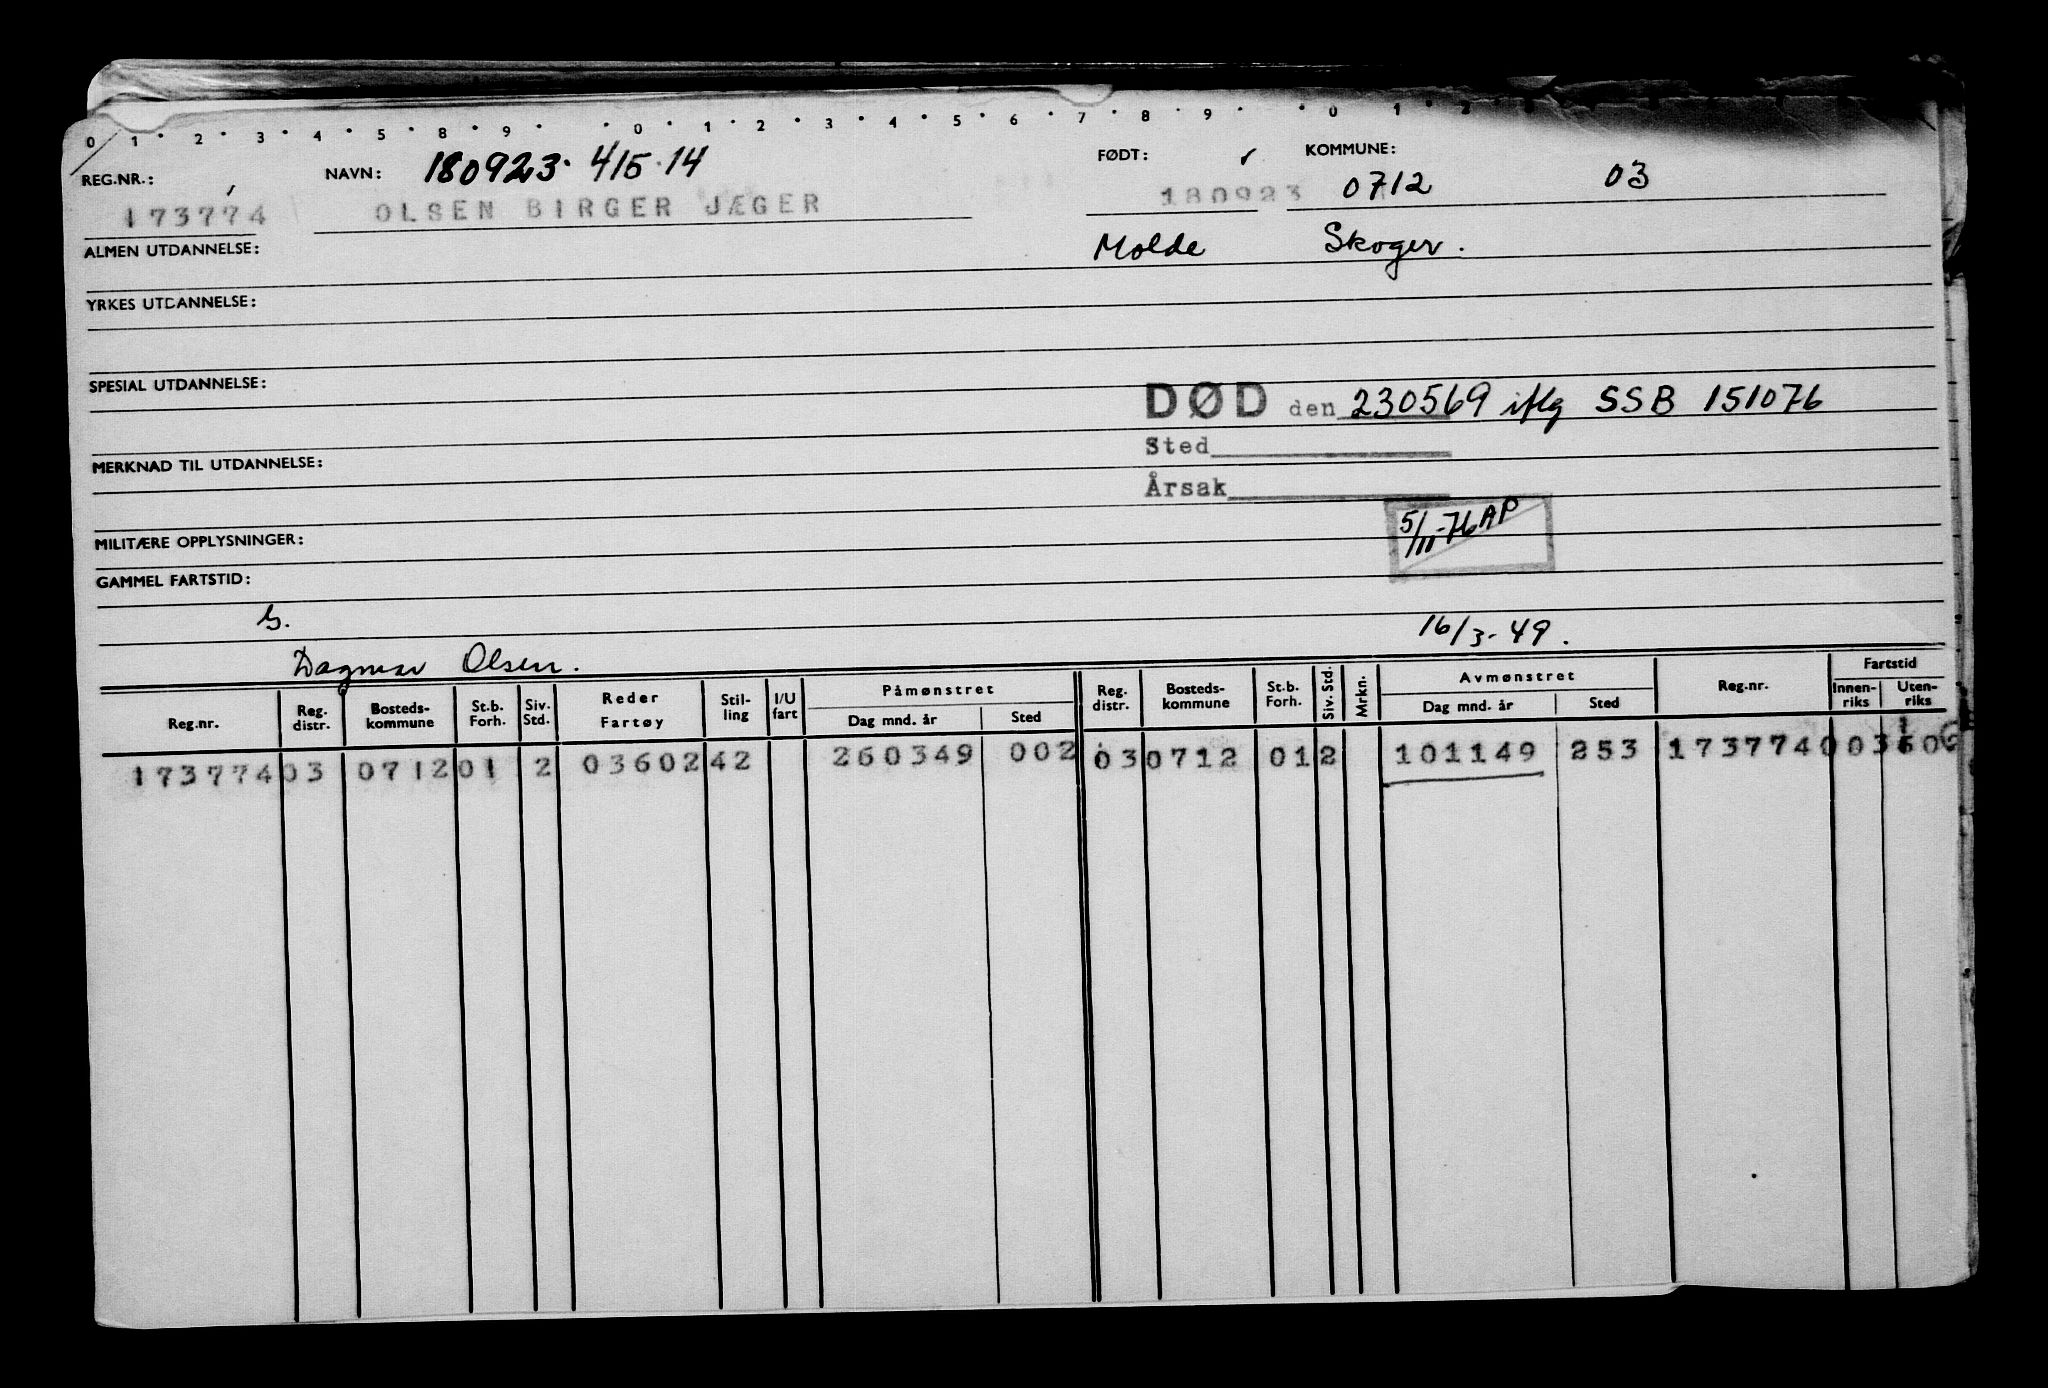 0 1 · 2 · 3 · 4 · 5 · 8 · 9 · · 0 · 1 · 2 · 3 · 4 · 5 · 6 · 7 · 8 · 9 · · 0 1 · 2
REG.NR.: NAVN: 180923. 415.14 FØDT: KOMMUNE: 0712 03
173774 OLSEN BIRGER JÆGER 180923
ALMEN UTDANNELSE: Molde Skoger.
YRKES UTDANNELSE:
SPESIAL UTDANNELSE:
DØD den 230569 iflg SSB 151076
Sted
MERKNAD TIL UTDANNELSE:
Årsak
5/11-76 AP
MILITÆRE OPPLYSNINGER:
GAMMEL FARTSTID:
G.
16/3-49.
Dagmar Olsen.
Reg.nr. Reg. distr. Bosteds-kommune St.b. Forh. Siv. Std. Reder Fartøy Stil-ling I/U fart Påmønstret Dag mnd. år Sted Reg. distr. Bosteds-kommune St.b. Forh. Siv. Std. Mrkn. Avmønstret Dag mnd. år Sted Reg.nr. Fartstid Innen-riks Uten-riks
173774 03 0712 01 2 03602 42 260349 002 03 0712 01 2 101149 253 173774